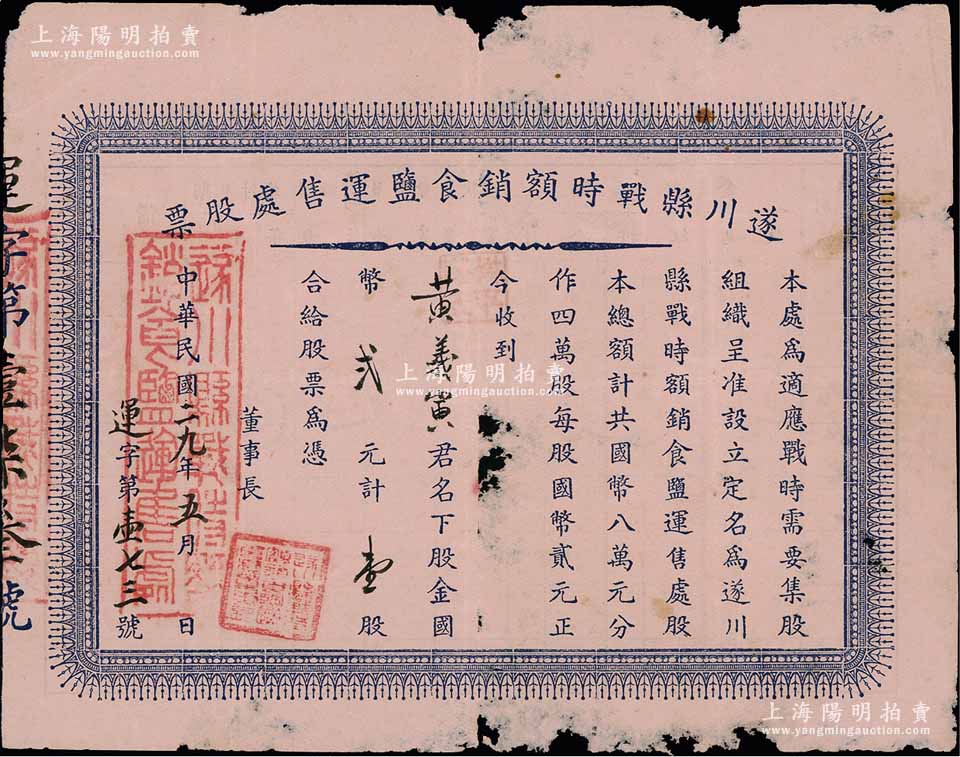 遂川縣戰時額銷食鹽運售處股票
本處為適應戰時需要集股
組織呈准設立定名為遂川
縣戰時額銷食鹽運售處股
本總額計共國幣八萬元分
作四萬股每股國幣貳元正
今收到
黃義寅君名下股金國
幣弍元計壹股
合給股票為憑
董事長
中華民國二九年五月日
運字第壹七三號
運字第壹柒叁號
遂川縣戰時額
銷食鹽運售處
上海陽明拍賣
www.yangmingauction.com
上海陽明拍賣
www.yangmingauction.com
上海陽明拍賣
www.yangmingauction.com